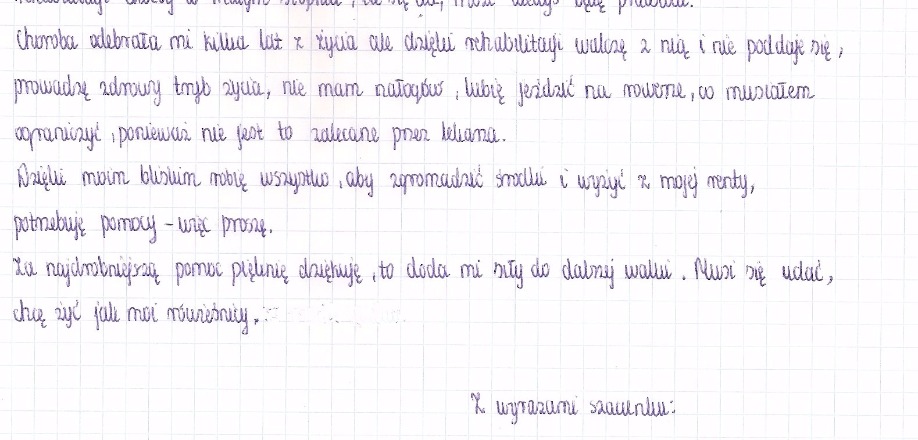 choroba odebrała mi kilka lat z życia ale dzięki rehabilitacji walczę z nią i nie poddaję się,
prowadzę zdrowy tryb życia, nie mam nałogów, lubię jeździć na rowerze, co musiałem
ograniczyć, ponieważ nie jest to zalecane przez lekarza.
Dzięki moim bliskim robię wszystko, aby zgromadzić środki i wyżyć z mojej renty,
potrzebuję pomocy - więc proszę.
Za najdrobniejszą pomoc pięknie dziękuję, to doda mi siły do dalszej walki. Musi się udać,
chcę żyć jak moi rówieśnicy.
Z wyrazami szacunku: